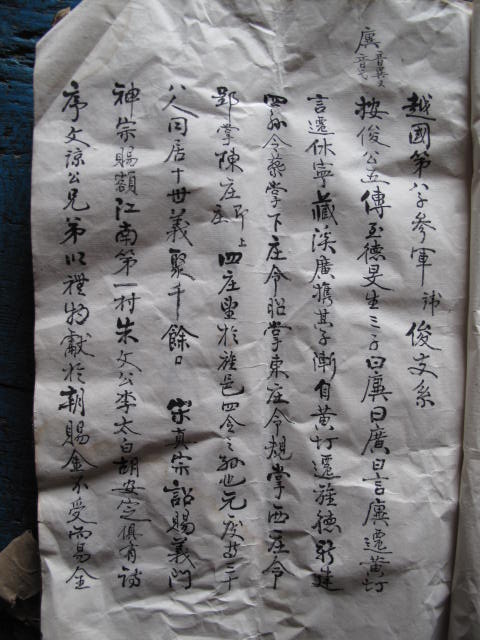 越國第八子參軍 諱俊支系
按俊公五傳至德旻生三子曰廙曰廣曰言廙遷黄村
言遷休寧藏溪廣攜其子漸自黄村遷旌德新建
四孫令棻掌下庄令昭掌東庄令規掌西庄令
郢掌陳庄即上四庄里於旌邑四令之孫也元度游三千
八人同居十世義聚千餘口 宋真宗詔賜義门
神宗賜額江南第一村朱文公李太白胡安定俱有詩
序文諒公兄第以禮物獻於朝賜金不受而易金